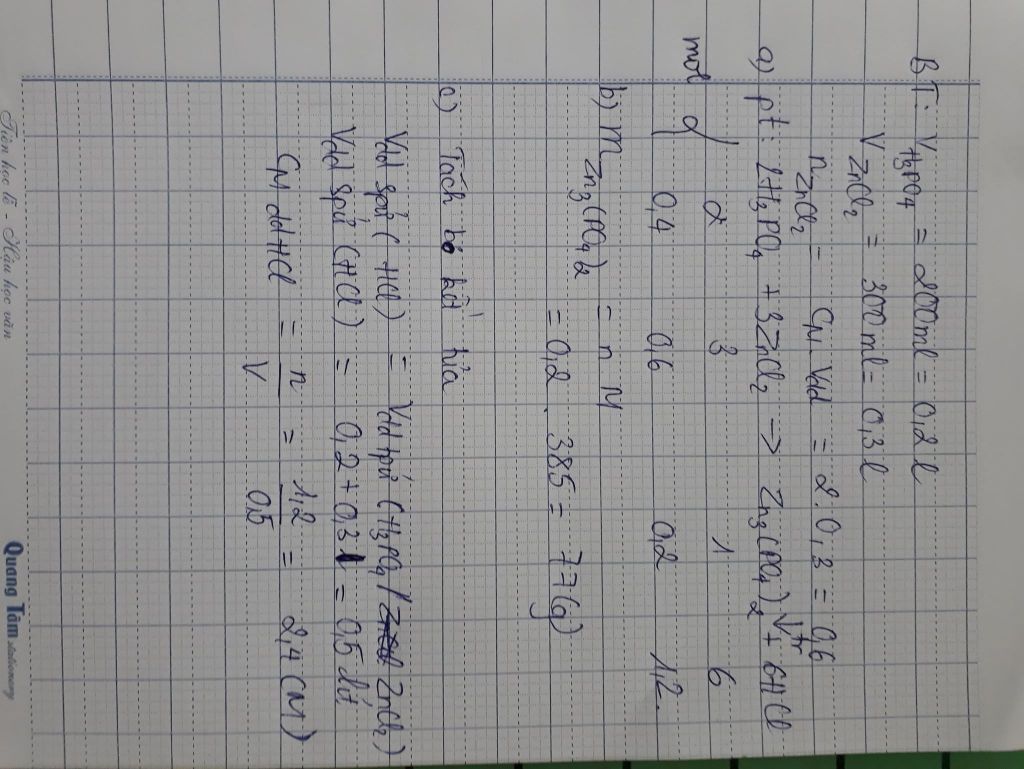 BT: V H₃PO₄ = 200ml = 0,2 l
V ZnCl₂ = 300ml = 0,3 l
n ZnCl₂ = CM. Vdd = 2. 0,3 = 0,6
a) pt: 2H₃PO₄ + 3ZnCl₂ → Zn₃(PO₄)₂↓ + 6HCl
2 3 1 6
mol 0,4 0,6 0,2 1,2.
b) m Zn₃(PO₄)₂ = n M
= 0,2 . 385 = 77(g)
c) Tách bỏ kết tủa
Vdd spứ (HCl) = Vdd tpứ (H₃PO₄ / ZnCl₂)
Vdd spứ (HCl) = 0,2 + 0,3 = 0,5
CM dd HCl = n/V = 1,2/0,5 = 2,4 (M)
Tiên học lễ - Hậu học văn
Quang Tâm stationery